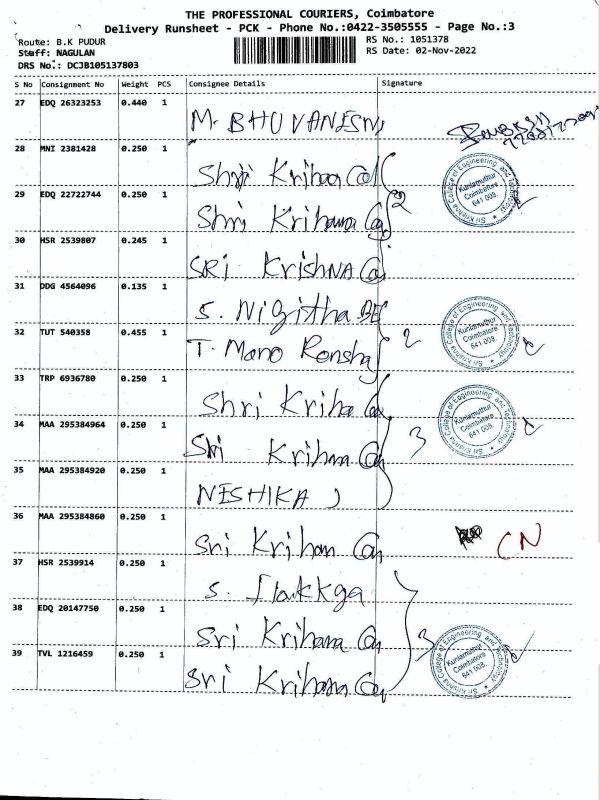 THE PROFESSIONAL COURIERS, Coimbatore
Delivery Runsheet - PCK - Phone No.:0422-3505555 - Page No.:3
Route: B.K PUDUR
RS No.: 1051378
Staff: NAGULAN
RS Date: 02-Nov-2022
DRS No.: DCJB105137803
S No Consignment No Weight PCS Consignee Details Signature
27 EDQ 26323253 0.440 1
M. BHUVANESN
28 MNI 2381428 0.250 1
Shri Krihna Col
29 EDQ 22722744 0.250 1
Shri Krihana Co 2
30 HSR 2539807 0.245 1
SRI KrishNA Co
31 DDG 4564096 0.135 1
S. Nigitha BE
32 TUT 540358 0.455 1
T. Mano Ronsha 2
33 TRP 6936780 0.250 1
Shri Kriha Co
34 MAA 295384964 0.250 1
Sri Krihana Co 3
35 MAA 295384920 0.250 1
NESHIKA J
36 MAA 295384860 0.250 1
Sri Krihan Co CN
37 HSR 2539914 0.250 1
S. Ilakkga
38 EDQ 20147750 0.250 1
Sri Krihana Co 3
39 TVL 1216459 0.250 1
Sri Krihana Co
Sri Krishna College of Engineering and Technology
Kuniamuthur
Coimbatore
641 008.
Sri Krishna College of Engineering and Technology
Kuniamuthur
Coimbatore
641 008.
Sri Krishna College of Engineering and Technology
Kuniamuthur
Coimbatore
641 008.
Sri Krishna College of Engineering and Technology
Kuniamuthur
Coimbatore
641 008.